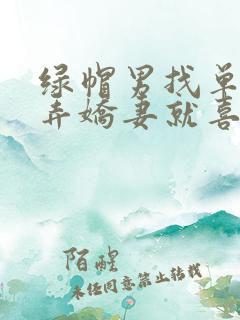 绿帽男找单
弄嬌妻就喜
陌醒
未经同意禁止转载